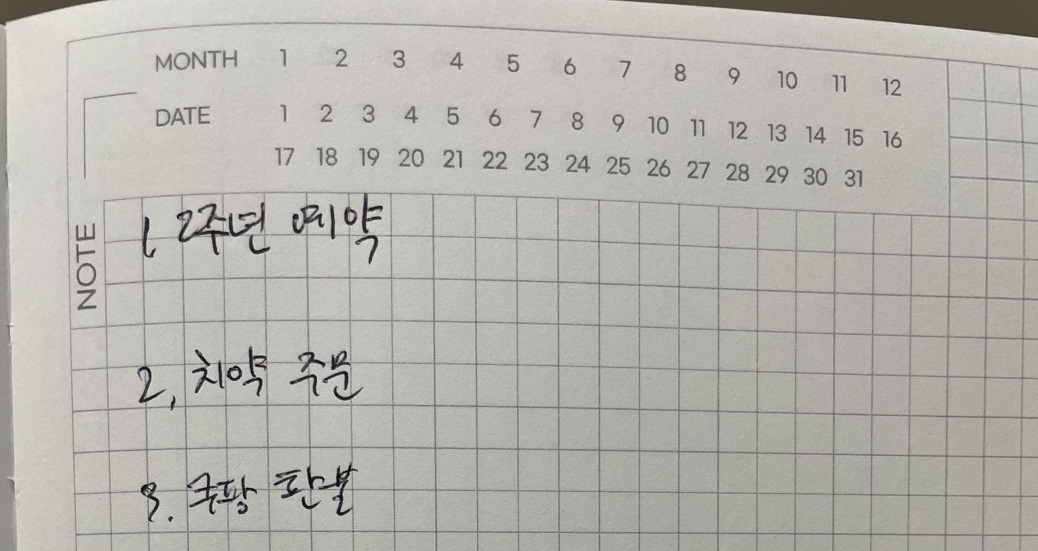 MONTH 1 2 3 4 5 6 7 8 9 10 11 12
DATE 1 2 3 4 5 6 7 8 9 10 11 12 13 14 15 16
17 18 19 20 21 22 23 24 25 26 27 28 29 30 31
NOTE
1 2주년 예약
2, 치약 주문
3. 쿠팡 환불